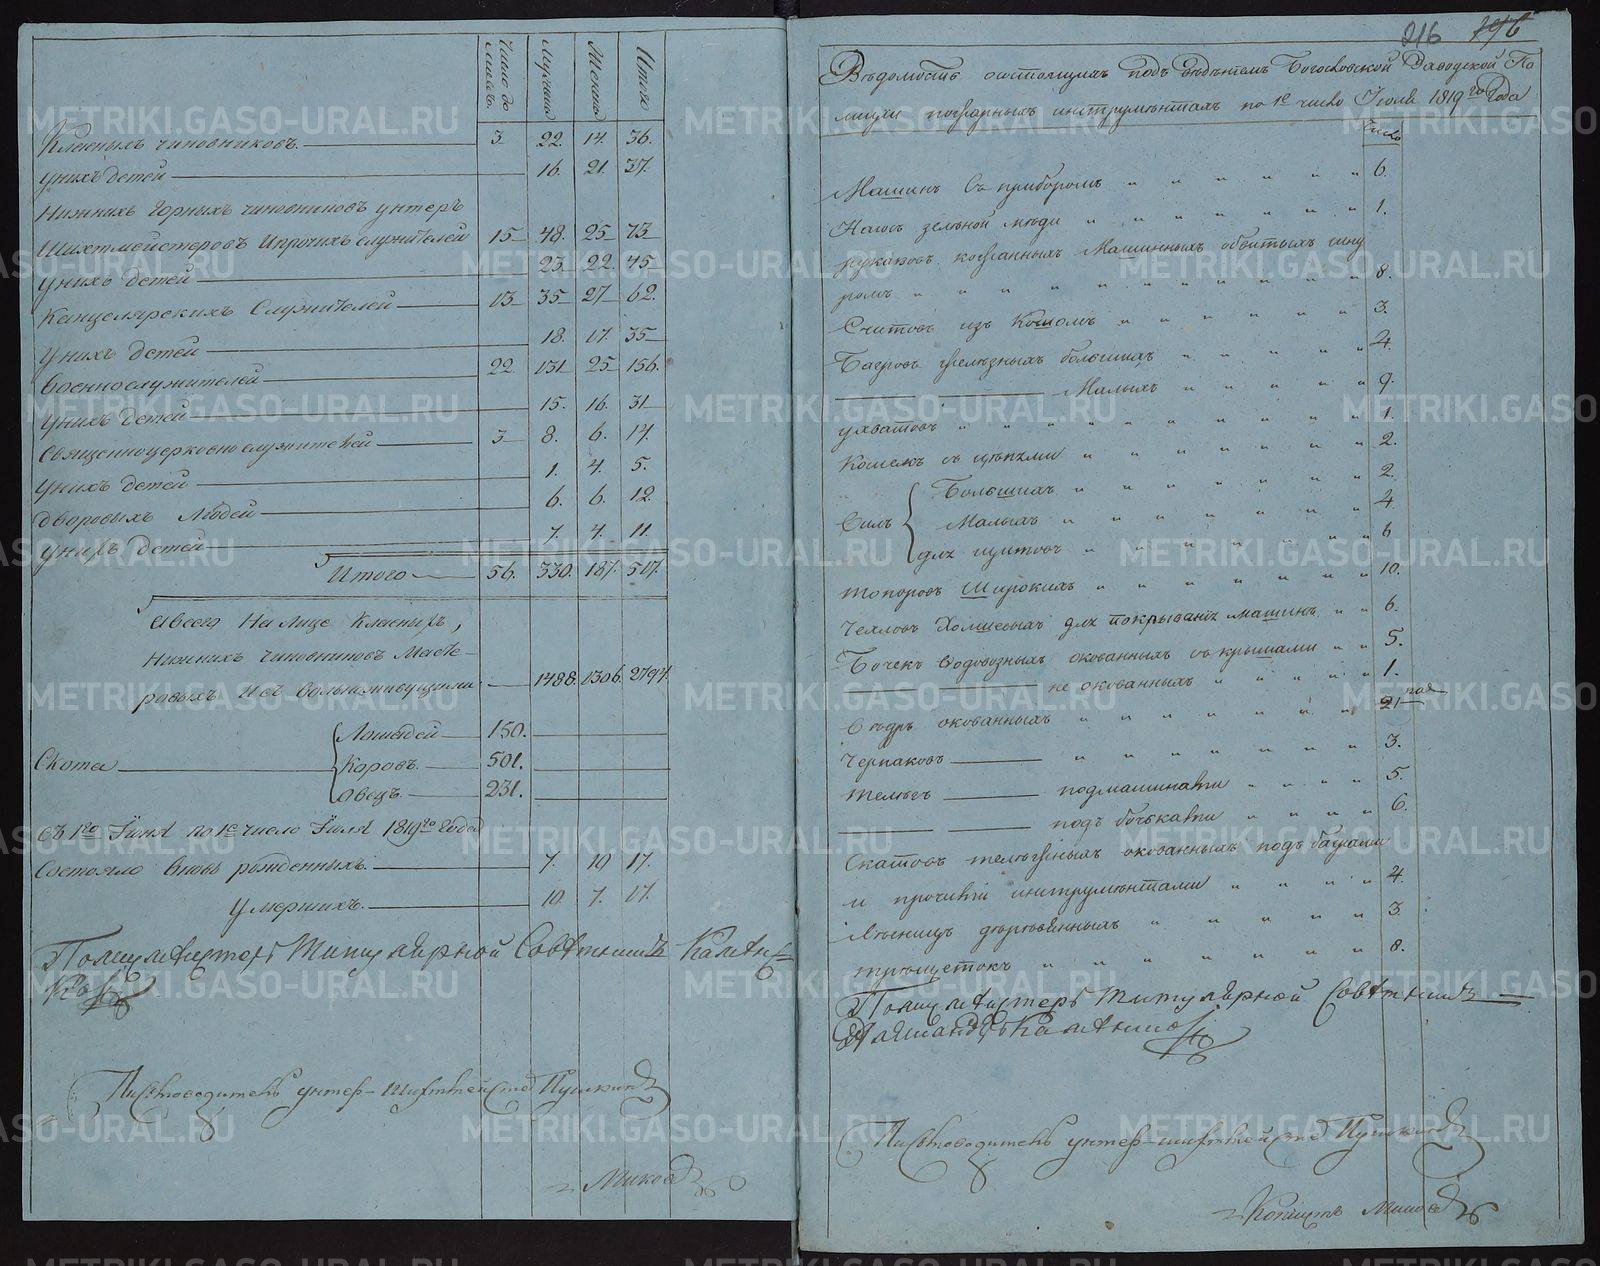 Число до
мовъ.
Мужеска
Женска
Итого
Класныхъ чиновниковъ. 3. 22. 14. 36.
у нихъ детей 16. 21. 37.
Нижнихъ Горныхъ чиновниковъ унтеръ
Шихтмейстеровъ и прочихъ служителей 15 48. 25 73
у нихъ детей 23. 22. 45
Канцелярскихъ Служителей 13 35 27 62.
у нихъ детей 18. 17. 35
Военнослужителей 22 131 25 156.
у нихъ детей 15. 16. 31
Священноцерковнослужителей 3 8. 6. 14.
у нихъ детей 1. 4. 5.
Дворовыхъ людей 6. 6. 12.
у нихъ детей 7. 4. 11.
Итого 56. 330. 187. 517.
А всего на лице Класныхъ,
Нижнихъ чиновниковъ Масте-
ровыхъ и съ вольноживущими 1488. 1306. 2794.
Лошадей 150.
Скота Коровъ. 501.
Овецъ. 231.
Съ 1го Іюня по 1е число Іюля 1819го года
Состояло вновь рожденныхъ. 7. 10 17.
Умершихъ. 10. 7. 17.
Полицмейстеръ Титулярной Советникъ
Письмоводитель унтер-шихтмейстер Пушкинъ
216 196
Ведомость состоящимъ подъ веденiемъ Богословской Заводской По
лиции пожарныхъ инструментахъ по 1е число Iюля 1819го Года
Число
Машинъ съ приборомъ 6.
Насосъ зеленой меди 1.
рукавовъ кожанныхъ Машинныхъ обвитыхъ шну
ромъ 8.
Считовъ изъ Кошомъ 3.
Багровъ железныхъ большихъ 4.
Малыхъ 9.
ухватовъ 1.
Кошекъ съ цепями 2.
Большихъ 2.
Вилъ Малыхъ 4
для щитовъ 6
топоровъ Широкихъ 10.
Чехловъ Холщевыхъ для покрыванiя машинъ 6.
Бочекъ водовозныхъ окованныхъ съ крышами 5.
не окованныхъ 1.
окованныхъ 21
Черпаковъ 3.
телегъ подмашинами 5.
подъ бочками 6.
Скатовъ тележныхъ окованныхъ подъ баграми
и прочими инструментами 4.
Лесницъ 3.
8.
Полицмейстеръ Титулярной Советникъ
Письмоводитель унтер-шихтмейстер Пушкинъ
Копиистъ
METRIKI.GASO-URAL.RU